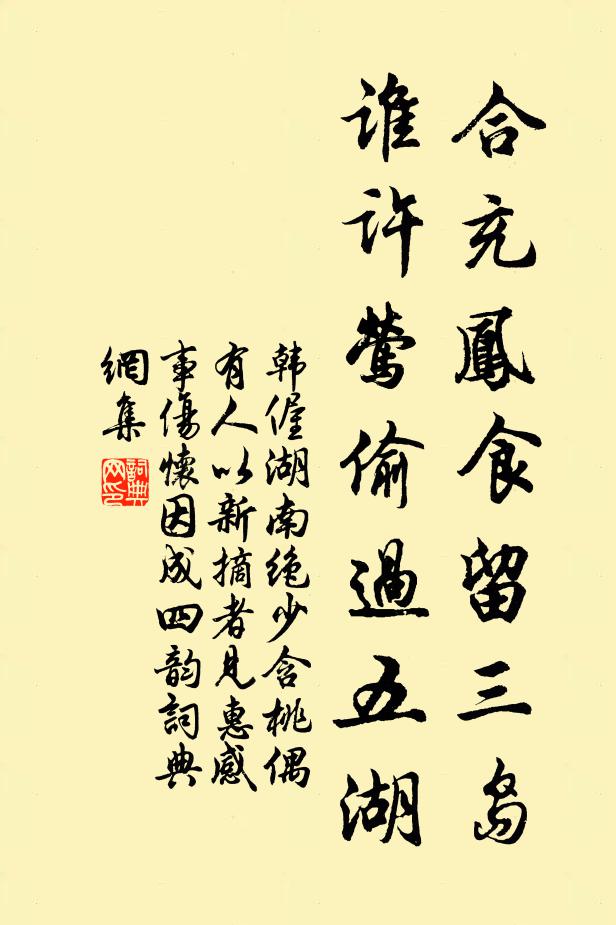 合充鳳食留三岛
誰许鶯偷過五湖
韩偓湖南绝少含桃偶
有人以新摘者见惠感
事傷懷因成四韵詞典
網集
詞典
网印